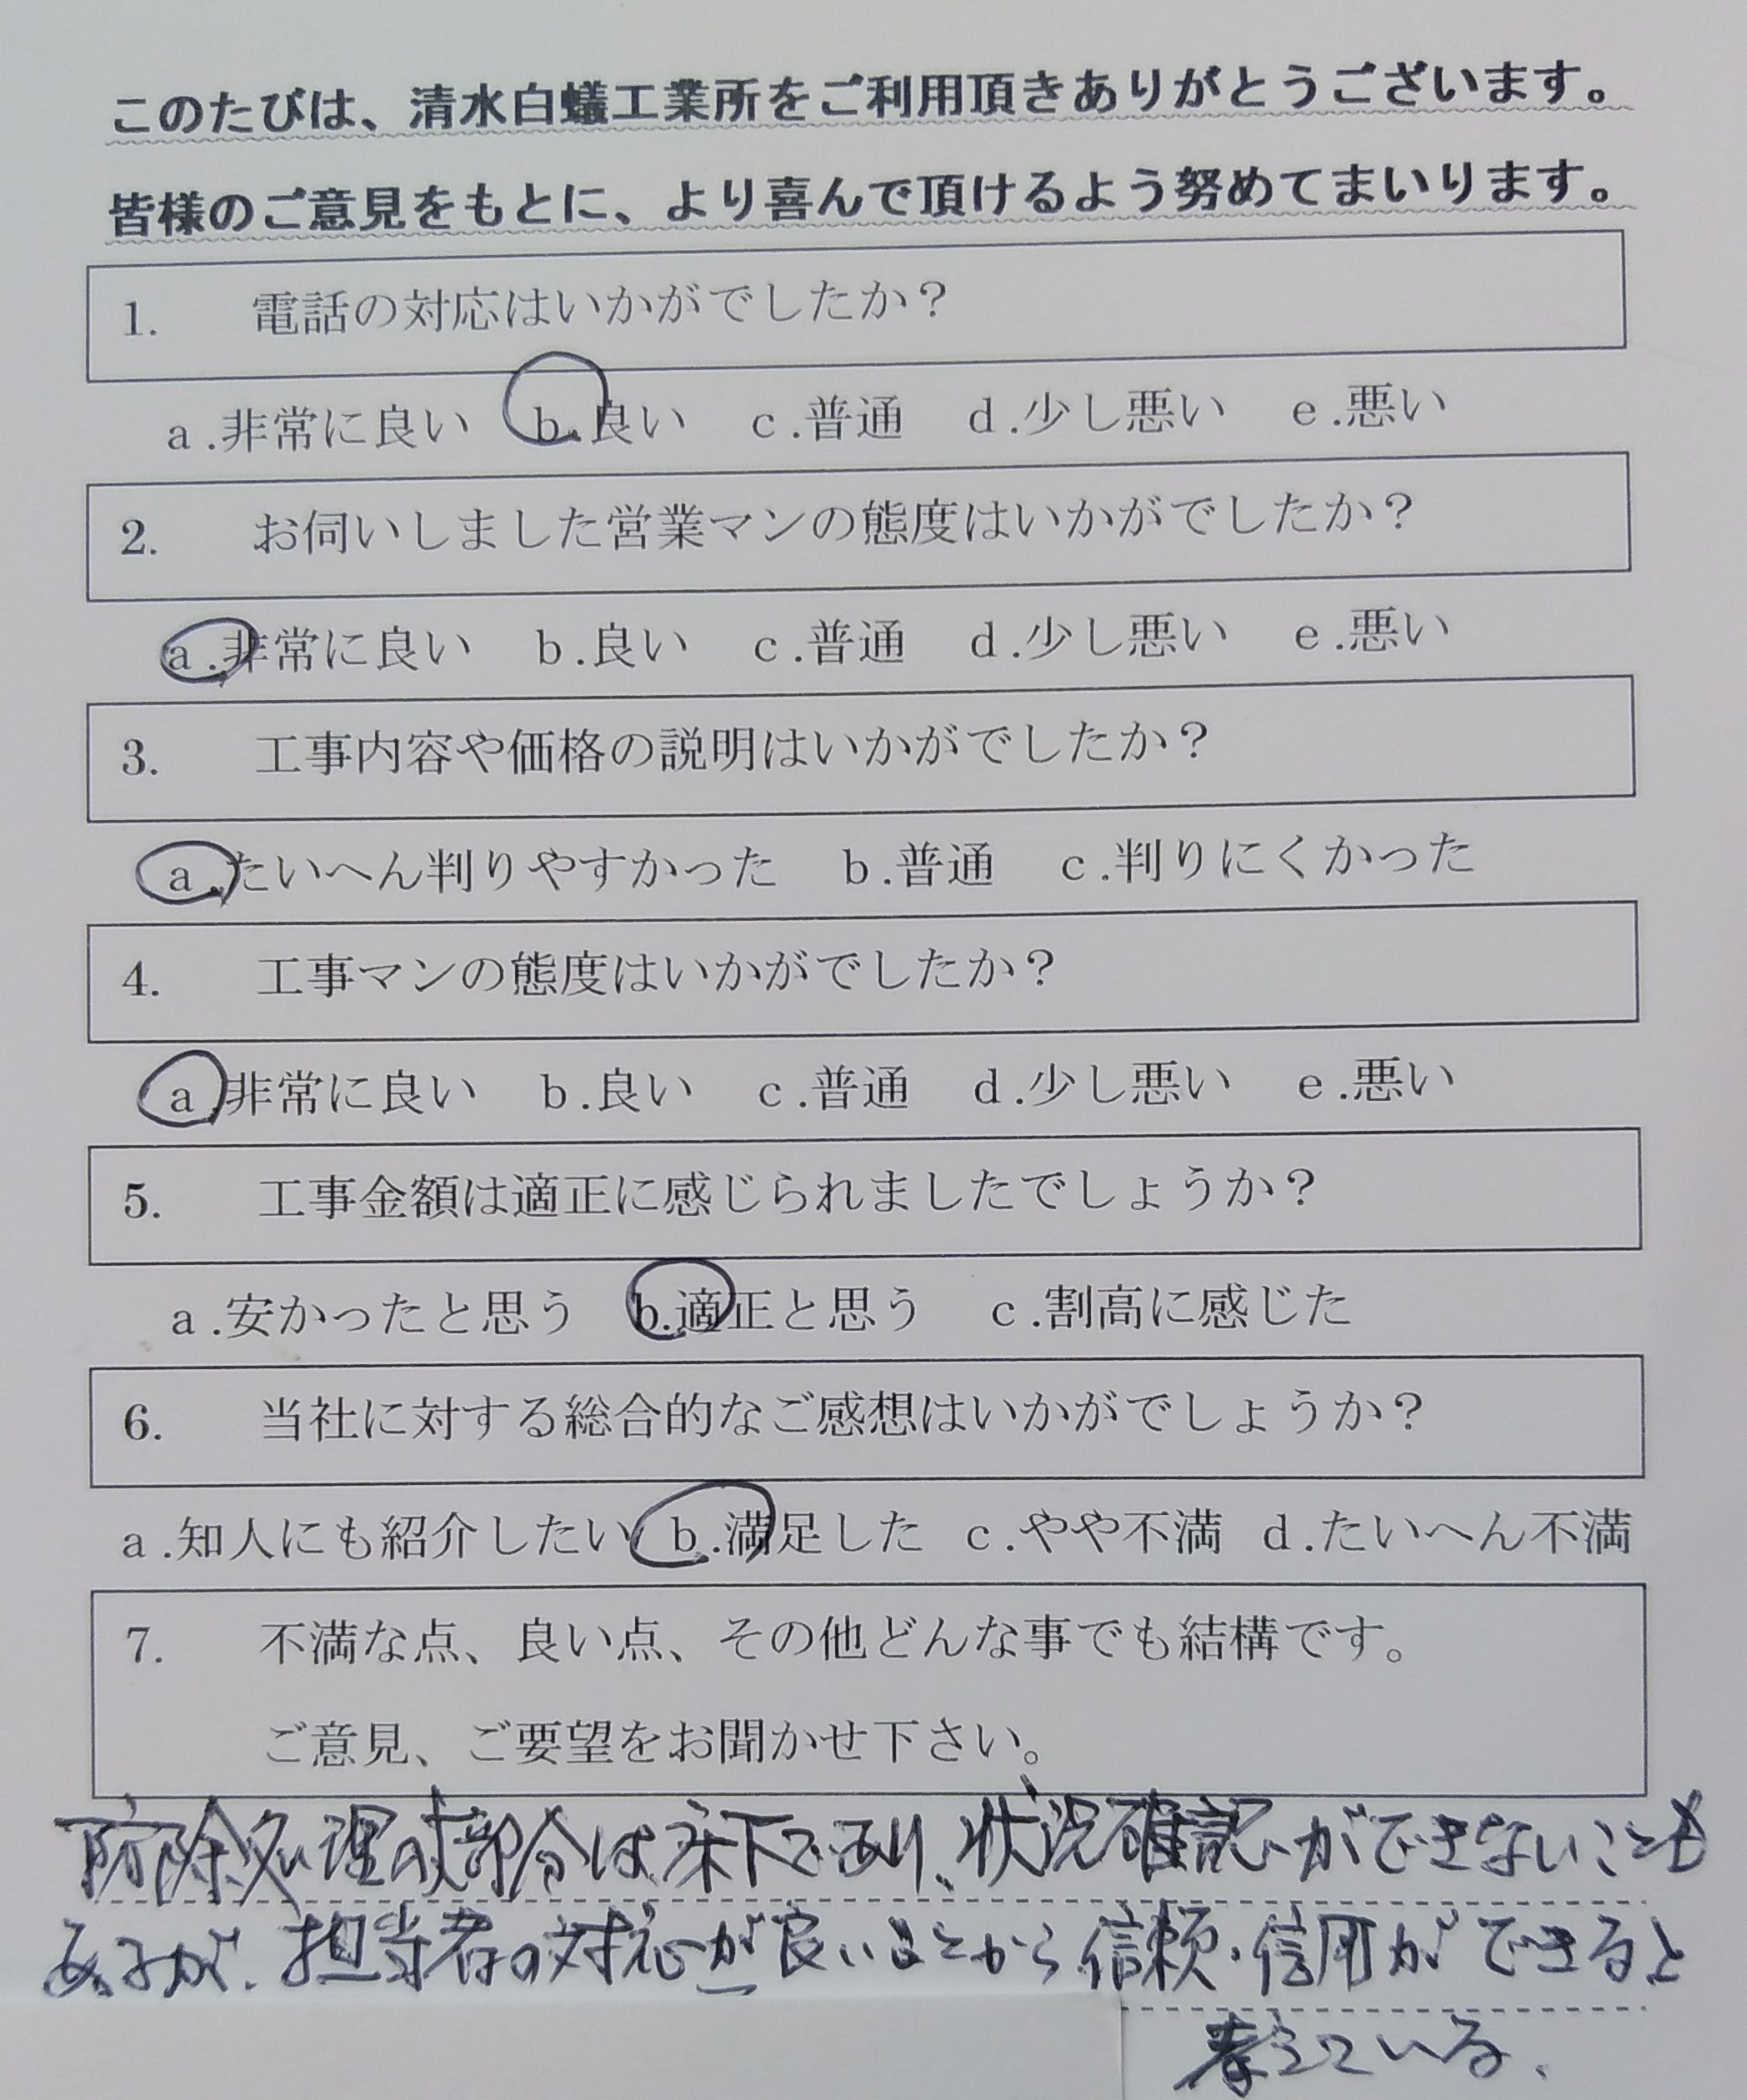 このたびは、清水白蟻工業所をご利用頂きありがとうございます。
皆様のご意見をもとに、より喜んで頂けるよう努めてまいります。
1. 電話の対応はいかがでしたか？
a.非常に良い b.良い c.普通 d.少し悪い e.悪い
2. お伺いしました営業マンの態度はいかがでしたか？
a.非常に良い b.良い c.普通 d.少し悪い e.悪い
3. 工事内容や価格の説明はいかがでしたか？
a.たいへん判りやすかった b.普通 c.判りにくかった
4. 工事マンの態度はいかがでしたか？
a.非常に良い b.良い c.普通 d.少し悪い e.悪い
5. 工事金額は適正に感じられましたでしょうか？
a.安かったと思う b.適正と思う c.割高に感じた
6. 当社に対する総合的なご感想はいかがでしょうか？
a.知人にも紹介したい b.満足した c.やや不満 d.たいへん不満
7. 不満な点、良い点、その他どんな事でも結構です。
ご意見、ご要望をお聞かせ下さい。
防除処理の大部分は床下であり、状況確認ができないことも
あるが、担当者の対応が良いことから信頼・信用ができると
考えている。